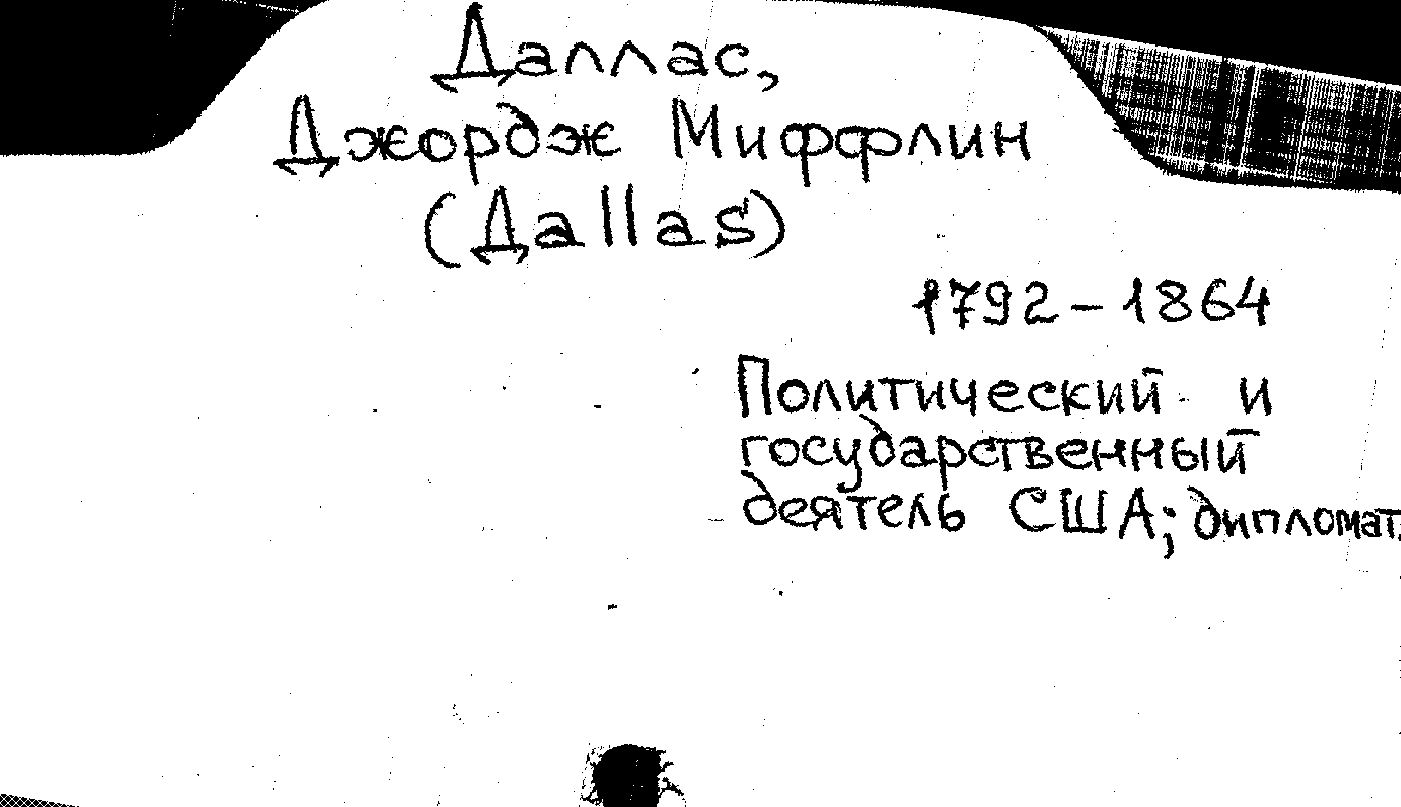 Даллас,
Джордж Миффлин
(Дallas)
1792-1864
Политический и
государственный
деятель США; дипломат.